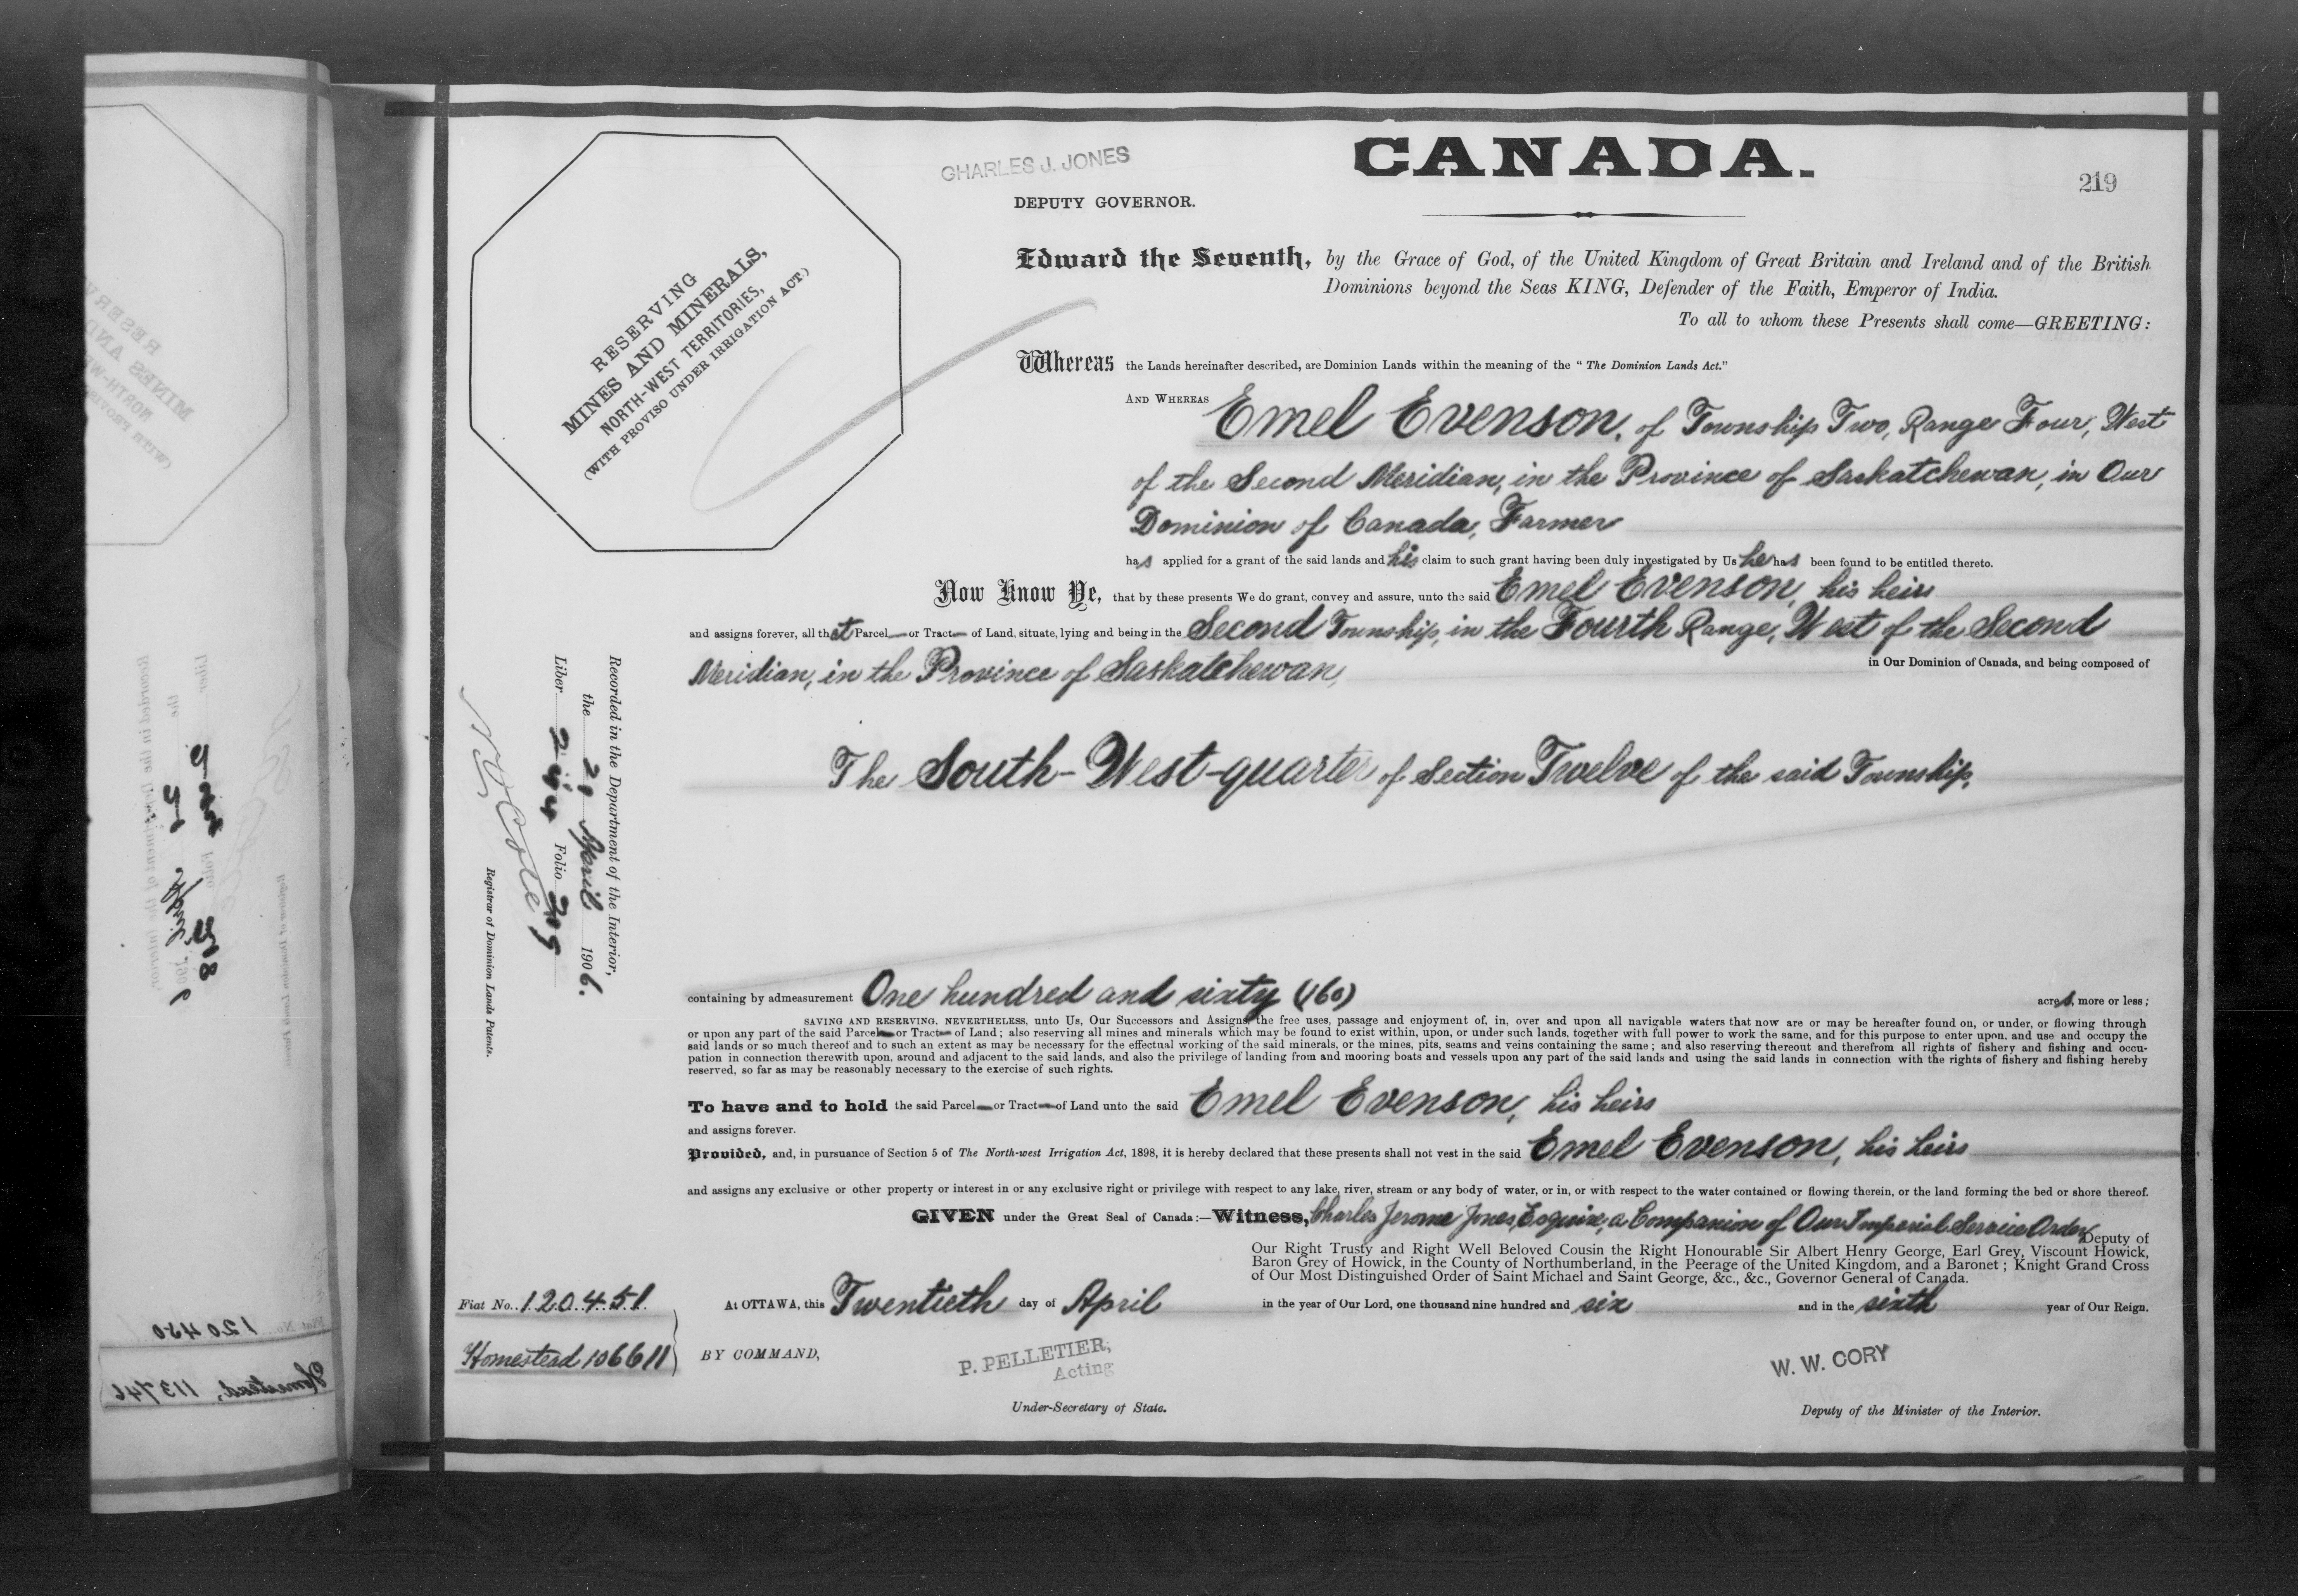 CHARLES J. JONES
DEPUTY GOVERNOR.
CANADA.
219
RESERVING
MINES AND MINERALS,
NORTH-WEST TERRITORIES,
(WITH PROVISO UNDER IRRIGATION ACT.)
Edward the Seventh, by the Grace of God, of the United Kingdom of Great Britain and Ireland and of the British
Dominions beyond the Seas KING, Defender of the Faith, Emperor of India.
To all to whom these Presents shall come—GREETING:
Whereas the Lands hereinafter described, are Dominion Lands within the meaning of the "The Dominion Lands Act."
AND WHEREAS Emel Evenson, of Township Two, Range Four, West
of the Second Meridian, in the Province of Saskatchewan, in Our
Dominion of Canada, Farmer
has applied for a grant of the said lands and his claim to such grant having been duly investigated by Us he has been found to be entitled thereto.
Now Know Ye, that by these presents We do grant, convey and assure, unto the said Emel Evenson, his heirs
and assigns forever, all that Parcel or Tract of Land, situate, lying and being in the Second Township, in the Fourth Range, West of the Second
Meridian, in the Province of Saskatchewan, in Our Dominion of Canada, and being composed of
The South-West-quarter of Section Twelve of the said Township,
Recorded in the Department of the Interior,
the 21 April 1906.
Liber 244 Folio
Registrar of Dominion Lands Patents.
containing by admeasurement One hundred and sixty (160) acres, more or less;
SAVING AND RESERVING, NEVERTHELESS, unto Us, Our Successors and Assigns, the free uses, passage and enjoyment of, in, over and upon all navigable waters that now are or may be hereafter found on, or under, or flowing through
or upon any part of the said Parcel or Tract of Land; also reserving all mines and minerals which may be found to exist within, upon, or under such lands, together with full power to work the same, and for this purpose to enter upon, and use and occupy the
said lands or so much thereof and to such an extent as may be necessary for the effectual working of the said minerals, or the mines, pits, seams and veins containing the same; and also reserving thereout and therefrom all rights of fishery and fishing and occu-
pation in connection therewith upon, around and adjacent to the said lands, and also the privilege of landing from and mooring boats and vessels upon any part of the said lands and using the said lands in connection with the rights of fishery and fishing hereby
reserved, so far as may be reasonably necessary to the exercise of such rights.
To have and to hold the said Parcel or Tract of Land unto the said Emel Evenson, his heirs
and assigns forever.
Provided, and, in pursuance of Section 5 of The North-west Irrigation Act, 1898, it is hereby declared that these presents shall not vest in the said Emel Evenson, his heirs
and assigns any exclusive or other property or interest in or any exclusive right or privilege with respect to any lake, river, stream or any body of water, or in, or with respect to the water contained or flowing therein, or the land forming the bed or shore thereof.
GIVEN under the Great Seal of Canada:—Witness, Charles Jerome Jones, Esquire, a Companion of Our Imperial Service Order, Deputy of
Our Right Trusty and Right Well Beloved Cousin the Right Honourable Sir Albert Henry George, Earl Grey, Viscount Howick,
Baron Grey of Howick, in the County of Northumberland, in the Peerage of the United Kingdom, and a Baronet; Knight Grand Cross
of Our Most Distinguished Order of Saint Michael and Saint George, &c., &c., Governor General of Canada.
Fiat No. 120451.
At OTTAWA, this Twentieth day of April in the year of Our Lord, one thousand nine hundred and six and in the sixth year of Our Reign.
Homestead 106611
BY COMMAND,
P. PELLETIER,
Acting
Under-Secretary of State.
W. W. CORY
Deputy of the Minister of the Interior.
120450
Homestead, 113746